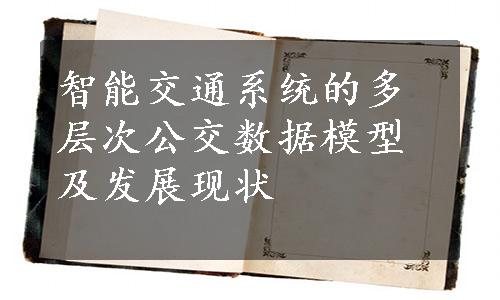 智能交通系统的多
层次公交数据模型
及发展现状